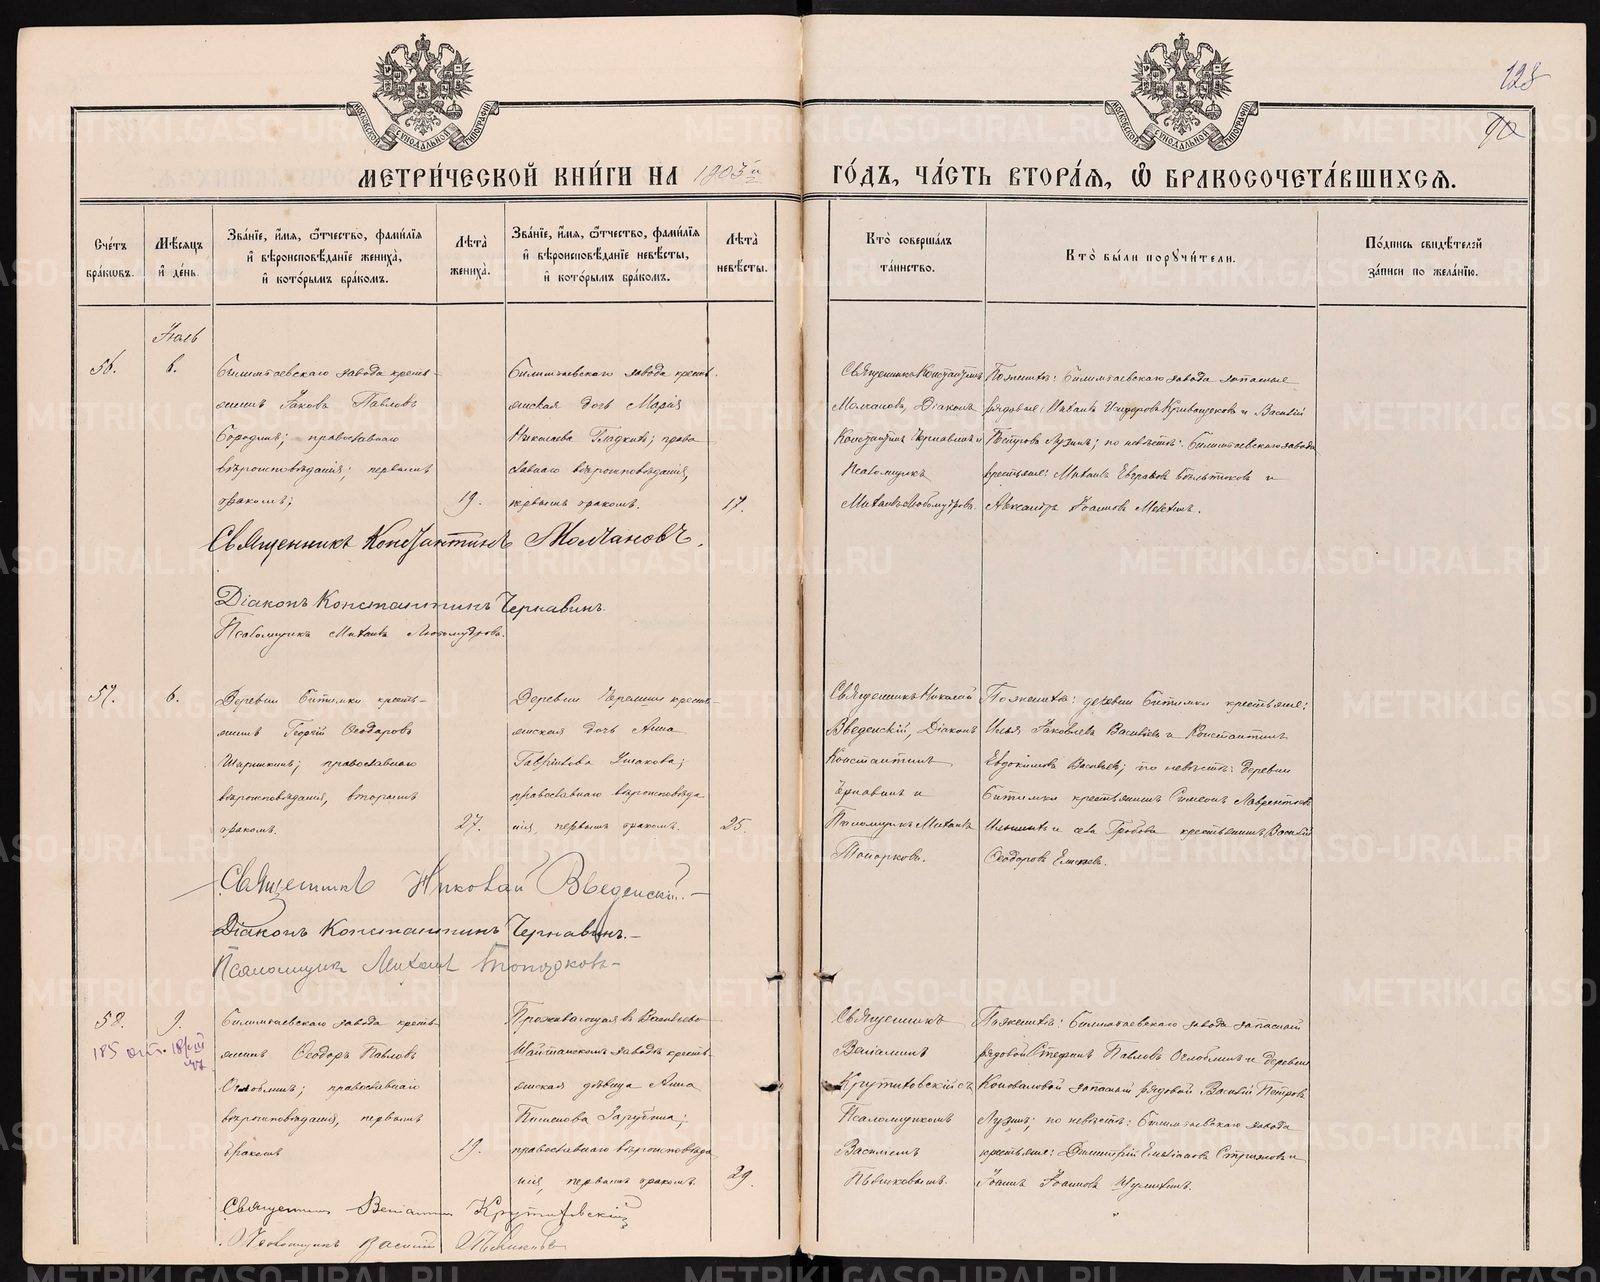 128
90
МЕТРИ́ЧЕСКОЙ КНИ́ГИ НА 1903й ГО́ДЪ, ЧА́СТЬ ВТОРА́Я, Ѽ БРАКОСОЧЕТА́ВШИХСЯ.
Сче́тъ бра́кѡвъ.
Мѣ́сяцъ и҆ де́нь.
Зва́нїе, и҆́мя, ѻ҆́тчество, фами́лїя и҆ вѣроисповѣ́данїе жениха̀, и҆ кото́рымъ бра́комъ.
Лѣ́та жениха̀.
Зва́нїе, и҆́мя, ѻ҆́тчество, фами́лїя и҆ вѣроисповѣ́данїе невѣ́сты, и҆ кото́рымъ бра́комъ.
Лѣ́та невѣ́сты.
Кто̀ соверша́лъ та́инство.
Кто̀ бы́ли порꙋчи́тели.
По́дпись свидѣ́телей за́писи по жела́нїю.
Іюль
56.
6.
Билимбаевскаго завода кресть-
янинъ Іаковъ Павловъ
Бородинъ; православнаго
вѣроисповѣданія; первымъ
бракомъ;
19.
Билимбаевскаго завода кресть-
янская дочь Марія
Николаева Гладкихъ; право
славнаго вѣроисповѣданія,
первымъ бракомъ.
17.
Священникъ Константинъ
Молчановъ, Діаконъ
Константинъ Чернавинъ и
Псаломщикъ
Михаилъ Любомудровъ.
По женихѣ: Билимбаевскаго завода запасные
рядовые: Михаилъ Исидоровъ Кривощековъ и Василій
Петровъ Лузинъ; по невѣстѣ: Билимбаевскаго завода
крестьяне: Михаилъ Евграфовъ и
Александръ Іоанновъ
Священникъ Константинъ Молчановъ.
Діаконъ Константинъ Чернавинъ.
Псаломщикъ Михаилъ Любомудровъ.
57.
6.
Деревни Битимки кресть-
янинъ Георгій Ѳеодоровъ
православнаго
вѣроисповѣданія, вторымъ
бракомъ.
27.
Деревни Черемши кресть-
янская дочь Анна
Гаврилова Ушакова;
православнаго вѣроисповѣда
нія, первымъ бракомъ.
25.
Священникъ Николай
Введенскій, Діаконъ
Константинъ
Чернавинъ и
Псаломщикъ Михаилъ
Топорковъ.
По женихѣ: деревни Битимки крестьяне:
Илья Іаковлевъ Васильевъ и Константинъ
Евдокимовъ Васильевъ; по невѣстѣ: деревни
Битимки крестьянинъ Симеонъ Лаврентьевъ
и села Гробова крестьянинъ Василій
Ѳеодоровъ
Священникъ Николай Введенскій.-
Діаконъ Константинъ Чернавинъ.-
Псаломщикъ Михаилъ Топорковъ-
58.
9.
185
Билимбаевскаго завода кресть-
янинъ Ѳеодоръ Павловъ
православнаго
вѣроисповѣданія, первымъ
бракомъ
19.
Проживающая въ Васильево
Шайтанскомъ заводѣ кресть-
янская дѣвица Анна
Пименова Зарубина;
православнаго вѣроисповѣда
нія, первымъ бракомъ.
29.
Священникъ
Веніаминъ
Крутиховскій съ
Псаломщикомъ
Василіемъ
По женихѣ: Билимбаевскаго завода запасный
рядовой Стефанъ Павловъ и деревни
Коноваловой запасный рядовой Василій Петровъ
Лузинъ; по невѣстѣ: Билимбаевскаго завода
крестьяне: Димитрій и
Іоаннъ Іоанновъ
Священникъ Веніаминъ Крутиховскій
Псаломщикъ Василій
METRIKI.GASO-URAL.RU